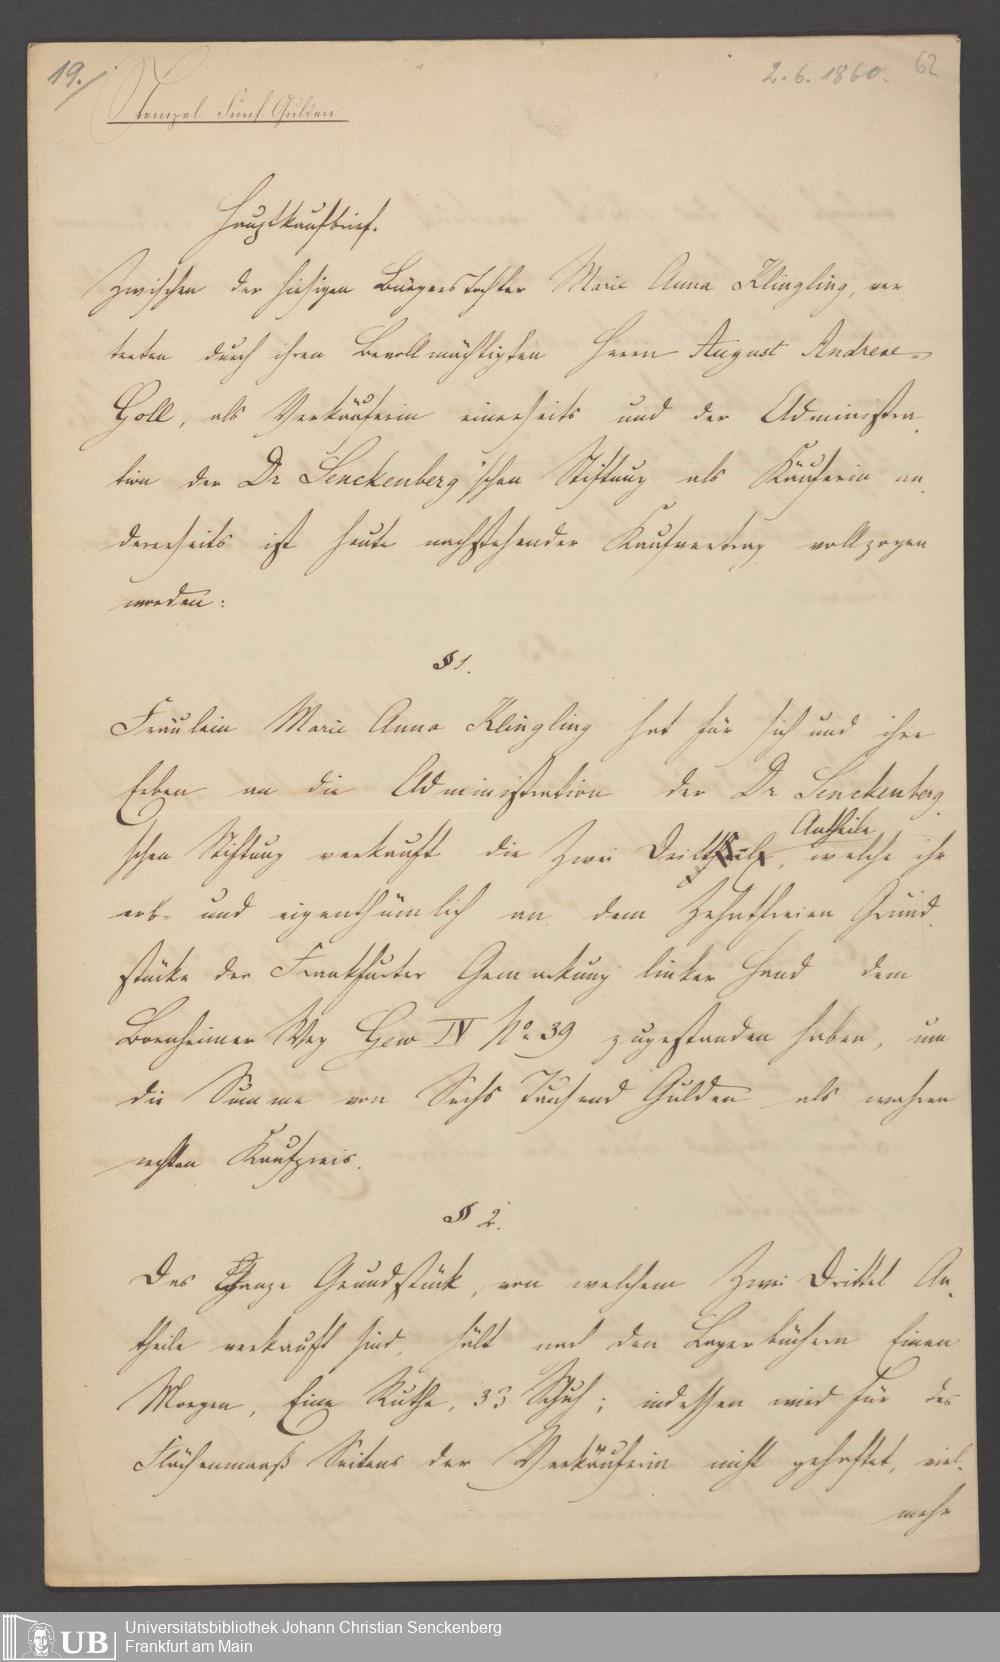 19./
2. 6. 1860.
62
Stempel Fünf Gulden
Hauptkaufbrief.
Zwischen der hiesigen Bürgerstochter Marie Anna Klingling, ver
treten durch ihren Bevollmächtigten Herrn August Andreae-
Goll, als Verkäuferin einerseits und der Administra
tion der Dr Senckenberg'schen Stiftung als Käuferin an
dererseits ist heute nachstehender Kaufvertrag vollzogen
worden:
§ 1.
Fräulein Marie Anna Klingling hat für sich und ihre
Erben an die Administration der Dr Senckenberg
schen Stiftung verkauft die Zwei Drittheile, Antheile welche ihr
erb- und eigenthümlich an dem zehntfreien Grund
stücke der Frankfurter Gemarkung linker Hand dem
Bornheimer Weg Gew IV No 39 zugestanden haben, um
die Summe von Sechs Tausend Gulden als wahren
rechten Kaufpreis.
§ 2.
Das Ganze Grundstück, von welchem Zwei Drittel An
theile verkauft sind, hält nach den Lagerbüchern Einen
Morgen, Eine Ruthe, 33 Schuh; indessen wird für das
Flächenmaaß Seitens der Verkäuferin nicht gehaftet, viel-
mehr
UB
Universitätsbibliothek Johann Christian Senckenberg
Frankfurt am Main